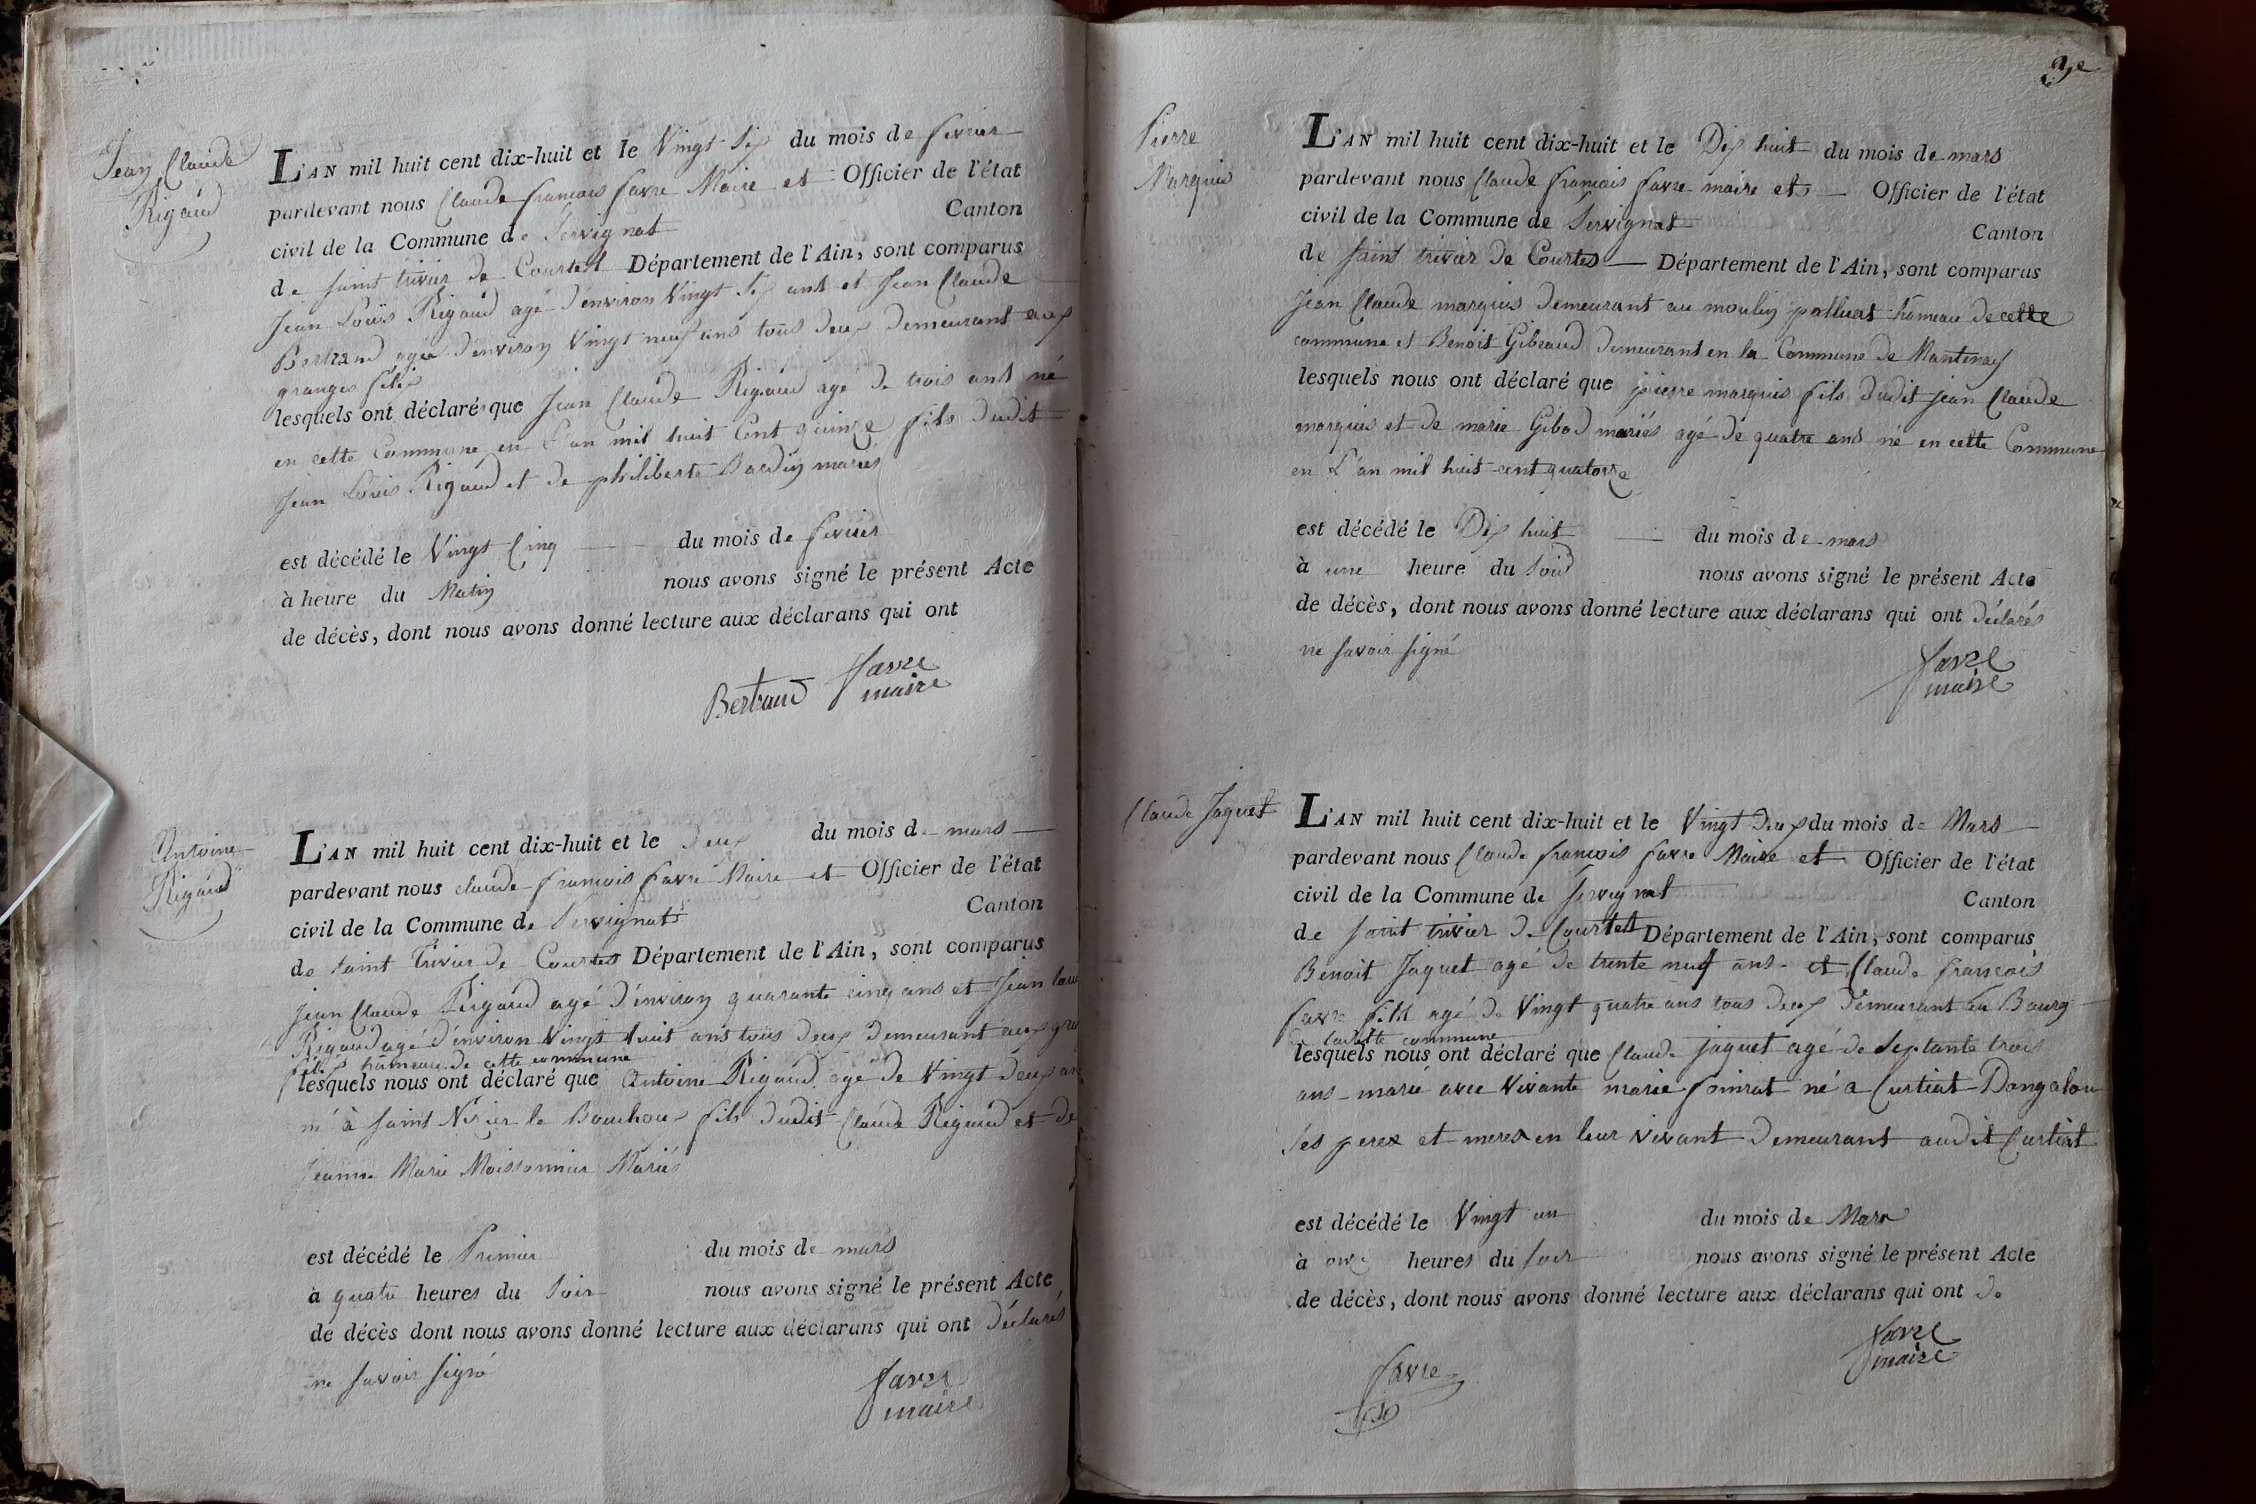 Jean Claude
Rigaud
L'AN mil huit cent dix-huit et le Vingt Six du mois de fevrier
pardevant nous Claude francois favre Maire et Officier de l'état
civil de la Commune de Servignat Canton
de saint trivier de Courtes Département de l'Ain, sont comparus
Jean Loüis Rigaud agé d'environ Vingt Six ans et Jean Claude
Bertrand agée d'environ Vingt neuf ans tous deux demeurant aux
granges
lesquels ont déclaré que Jean Claude Rigaud agé de trois ans né
en cette Commune en L'an mil huit Cent quinze fils dudit
Jean Louis Rigaud et de philiberte Bardin mariés
est décédé le Vingt Cinq du mois de fevrier
à heure du Matin nous avons signé le présent Acte
de décès, dont nous avons donné lecture aux déclarans qui ont
Bertrand favre
maire
Antoine
Rigaud
L'AN mil huit cent dix-huit et le deux du mois de mars
pardevant nous claude francois favre Maire et Officier de l'état
civil de la Commune de Servignat Canton
de saint Trivier de Courtes Département de l'Ain, sont comparus
Jean Claude Rigaud agé d'environ quarante cinq ans et Jean
Rigaud agé d'environ Vingt huit ans tous deux demeurant aux
hameau de cette commune
lesquels nous ont déclaré que Antoine Rigaud agé de Vingt deux
né à saint Nizier le Bouchoux fils dudit Claude Rigaud et de
Jeanne Marie Moissonnier Mariés
est décédé le Premier du mois de mars
à quatre heures du Soir nous avons signé le présent Acte
de décès dont nous avons donné lecture aux déclarans qui ont déclarés
ne savoir signé
favre
maire
Pierre
Marquis
L'AN mil huit cent dix-huit et le Dix huit du mois de mars
pardevant nous Claude francois favre maire et Officier de l'état
civil de la Commune de Servignat Canton
de saint trivier de Courtes Département de l'Ain, sont comparus
Jean Claude marquis demeurant au moulin palluat hameau de cette
commune et Benoit Gibeaud demeurant en la Commune de Mantenay
lesquels nous ont déclaré que pierre marquis fils dudit jean Claude
marquis et de marie Gibod mariés agé de quatre ans né en cette Commune
en L'an mil huit cent quatorze
est décédé le Dix huit du mois de mars
à une heure du soir nous avons signé le présent Acte
de décès, dont nous avons donné lecture aux déclarans qui ont déclarés
ne savoir signé
favre
maire
Claude Jaquet
L'AN mil huit cent dix-huit et le Vingt deux du mois de Mars
pardevant nous Claude francois favre Maire et Officier de l'état
civil de la Commune de Servignat Canton
de saint trivier de Courtes Département de l'Ain, sont comparus
Benoit Jaquet agé de trente neuf ans et Claude francois
favre fils agé de Vingt quatre ans tous deux demeurant au Bourg
de laditte commune
lesquels nous ont déclaré que Claude jaquet agé de Septante trois
ans marié avec Vivante marie né a Curtiat Dongalon
ses peres et meres en leur vivant demeurant audit Curtiat
est décédé le Vingt un du mois de Mars
à onze heures du soir nous avons signé le présent Acte
de décès, dont nous avons donné lecture aux déclarans qui ont de
favre
maire
favre